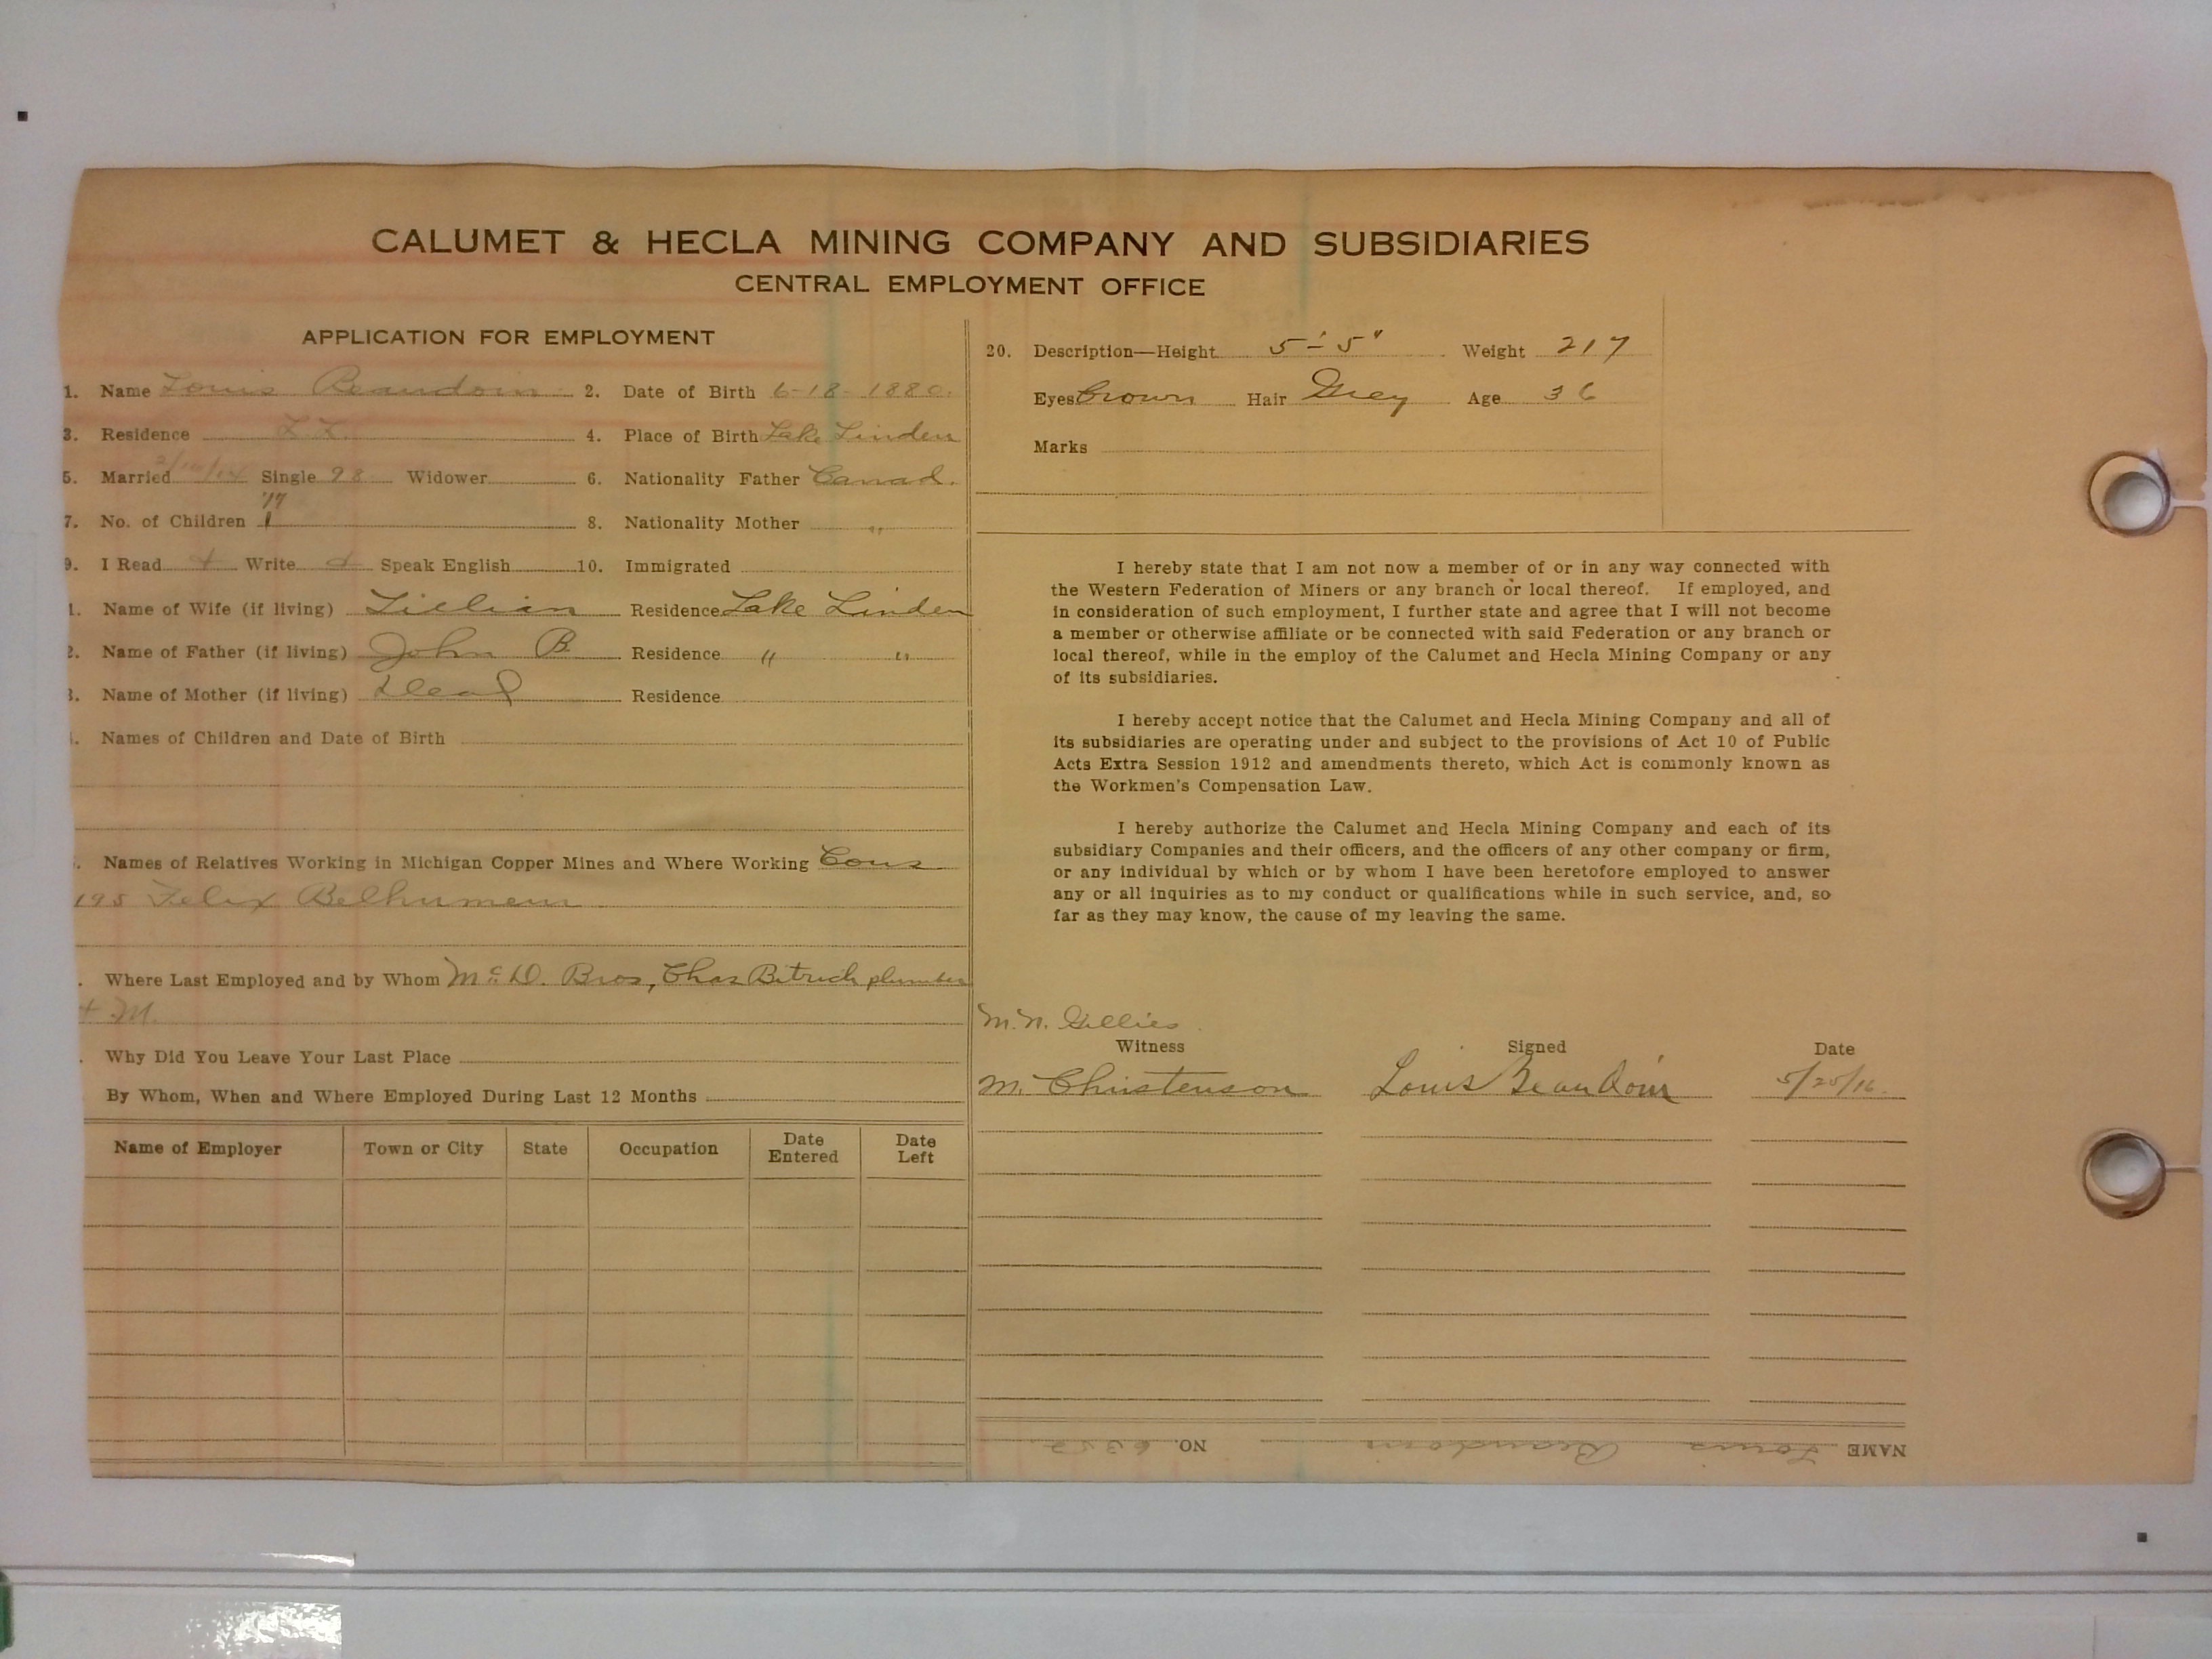 CALUMET & HECLA MINING COMPANY AND SUBSIDIARIES
CENTRAL EMPLOYMENT OFFICE
APPLICATION FOR EMPLOYMENT
1. Name Louis Beaudoin 2. Date of Birth 6-18-1880.
3. Residence L.L. 4. Place of Birth Lake Linden
5. Married 2/10/14 Single 98 Widower 6. Nationality Father Canad.
'17
7. No. of Children 1 8. Nationality Mother "
9. I Read Write Speak English 10. Immigrated
1. Name of Wife (if living) Lillian Residence Lake Linden
2. Name of Father (if living) John B. Residence " "
3. Name of Mother (if living) Dead Residence
. Names of Children and Date of Birth
. Names of Relatives Working in Michigan Copper Mines and Where Working Cous
195 Felix Belhumeur
. Where Last Employed and by Whom McD. Bros, Chas plumber
+ M.
. Why Did You Leave Your Last Place
By Whom, When and Where Employed During Last 12 Months
Name of Employer Town or City State Occupation Date Entered Date Left
20. Description—Height 5'-5" Weight 217
Eyes Brown Hair Grey Age 36
Marks
I hereby state that I am not now a member of or in any way connected with
the Western Federation of Miners or any branch or local thereof. If employed, and
in consideration of such employment, I further state and agree that I will not become
a member or otherwise affiliate or be connected with said Federation or any branch or
local thereof, while in the employ of the Calumet and Hecla Mining Company or any
of its subsidiaries.
I hereby accept notice that the Calumet and Hecla Mining Company and all of
its subsidiaries are operating under and subject to the provisions of Act 10 of Public
Acts Extra Session 1912 and amendments thereto, which Act is commonly known as
the Workmen's Compensation Law.
I hereby authorize the Calumet and Hecla Mining Company and each of its
subsidiary Companies and their officers, and the officers of any other company or firm,
or any individual by which or by whom I have been heretofore employed to answer
any or all inquiries as to my conduct or qualifications while in such service, and, so
far as they may know, the cause of my leaving the same.
M.N. Gillies.
Witness Signed Date
M. Christenson Louis Beaudoin 5/25/16.
NAME Louis Beaudoin NO. 6352